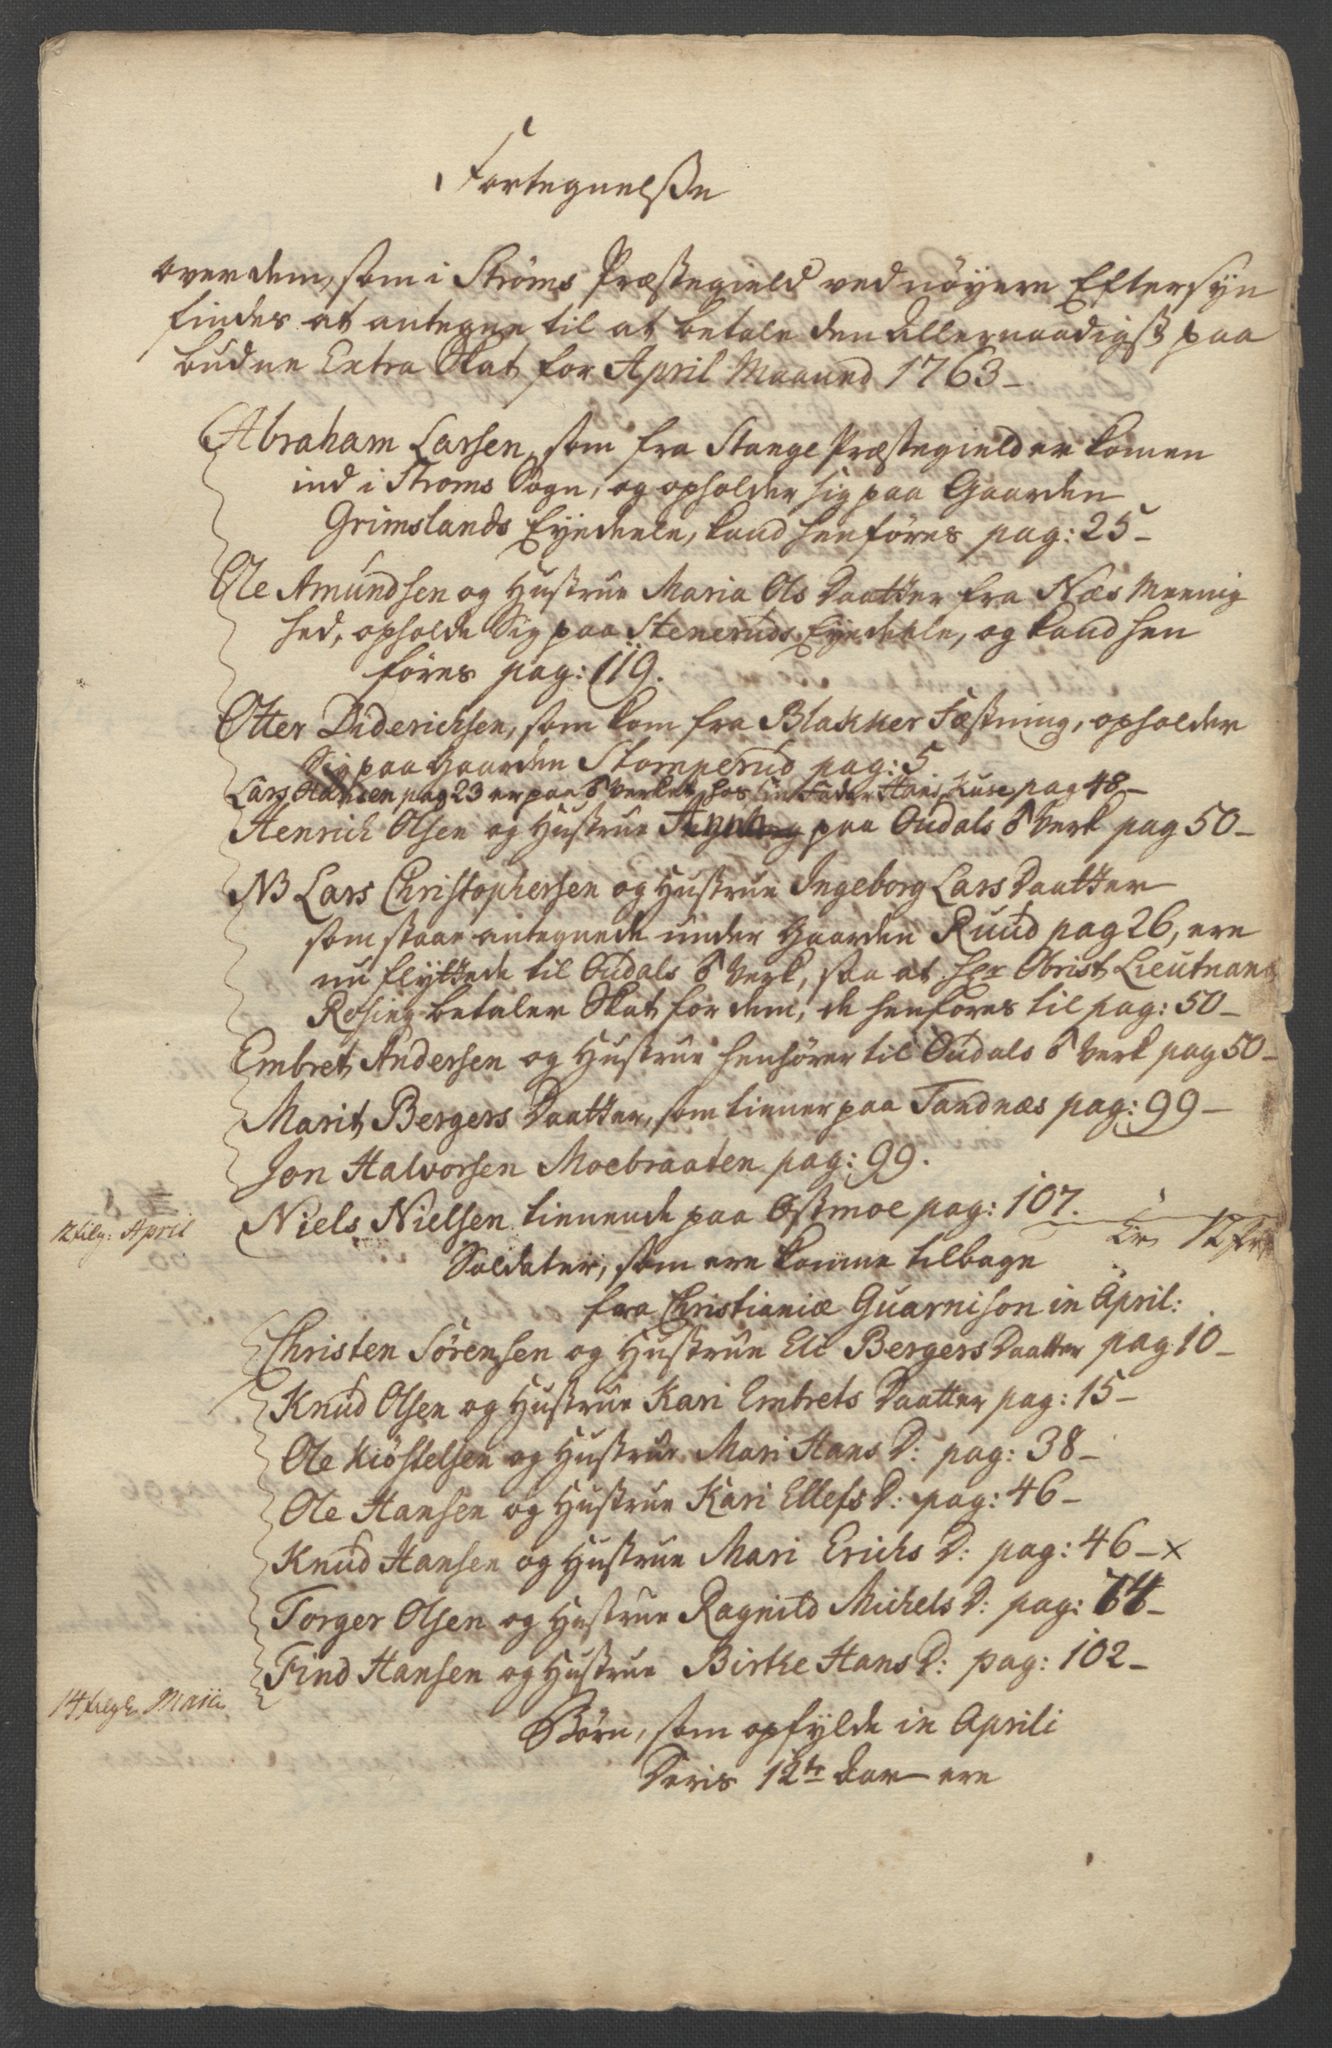 Fortegnelsse
over dem, som i Strøms Præstegield ved nøyere Eftersyn
findes at antegne til at betale den Allernaadigst paa
budne Extra Skat for April Maaned 1763-
Abraham Larsen, som fra Stange Præstegield er komen
ind i Strøms Sogn, og opholder sig paa Gaarden
Grimslands Eyedeele, kand henføres pag: 25-
Ole Amundsen og Hustrue Maria Ols Daatter fra Næs Meenig
hed, opholde Sig paa Steneruds Eyedeele, og kand hen
føres pag: 119.
Otter Diderichsen, som kom fra Blakker Fæstning, opholder
Sig paa Gaarden Stomperud pag: 5
Lars Hansen pag 23 er paa Verket hos sin Fader Hans pag 48-
Henrich Olsen og Hustrue paa Oudals Verk pag 50-
NB Lars Christophersen og Hustrue Ingeborg Lars Daatter
som staar antegnede under Gaarden Ruud pag 26, ere
nu flyttede til Oudals Verk, saa at Hr Obrist Lieutnant
Rosing betaler Skat for dem, de henføres til pag: 50-
Embret Andersen og Hustrue henhører til Oudals Verk pag 50-
Marit Bergers Daatter, som tienner paa Tandnæs pag: 99-
Jon Halvorsen Moebraaten pag: 99.
Niels Nielsen tienende paa Østmoe pag: 107.
12 tilg: April
12
Soldater, som ere komne tilbage
fra Christianiæ Guarnison in April:
Christen Sørensen og Hustrue Eli Bergers Daatter pag 10-
Knud Olsen og Hustrue Kari Embrets Daatter pag: 15-
Ole Kiøstelsen og Hustrue Mari Hans D: pag: 38-
Ole Hansen og Hustrue Kari Ellefs D: pag: 46-
Knud Hansen og Hustrue Mari Erichs D: pag: 46-x
Torger Olsen og Hustrue Ragnild Michels D: pag: 74-
Find Hansen og Hustrue Birthe Hans D: pag: 102-
14 Maii
Børn, som opfylde in Aprili
Deris 12te Aar ere